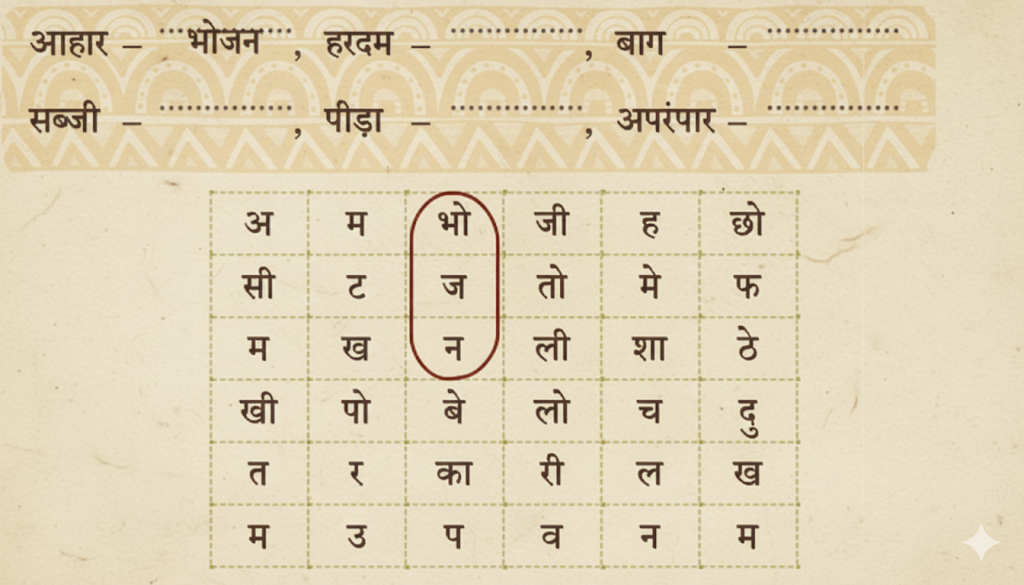 आहार – भोजन , हरदम – .............. , बाग – ..............
सब्जी – .............. , पीड़ा – .............. , अपरंपार – ..............
अ म भो जी ह छो
सी ट ज तो मे फ
म ख न ली शा ठे
खी पो बे लो च दु
त र का री ल ख
म उ प व न म